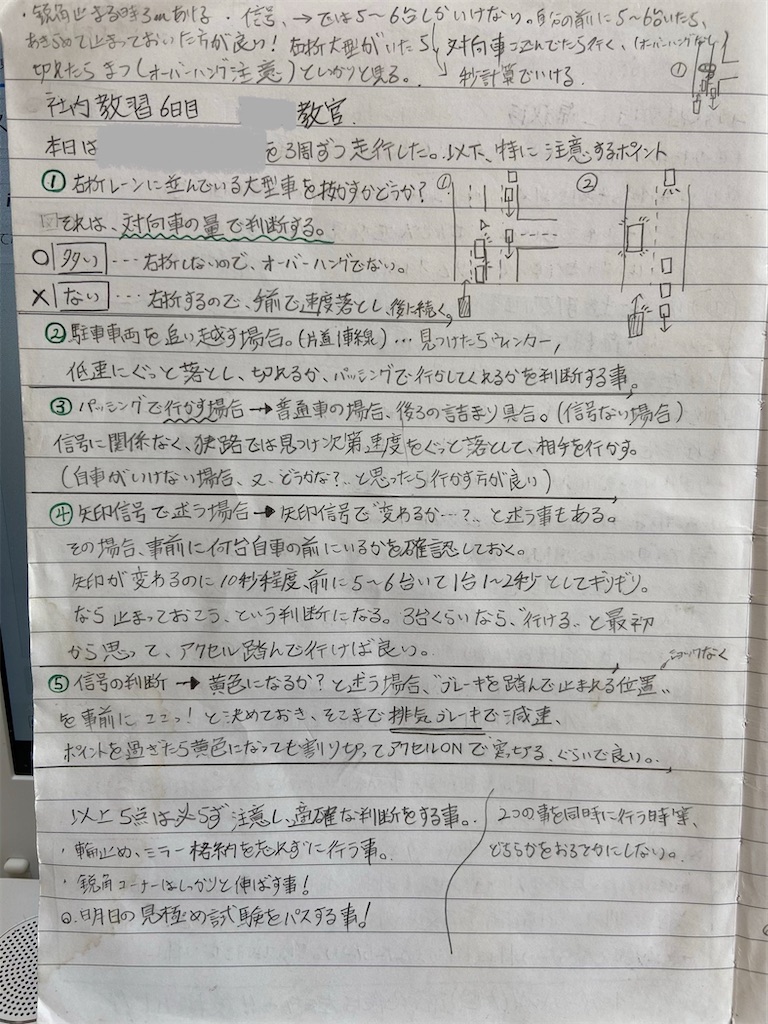 ・鋭角止まる時3mあける ・信号、→では5〜6台しかいけない。自分の前に5〜6台いたら、
あきらめて止まっておいた方が良い! 右折大型がいたら 対向車 混んでたら行く、(オーバーハングなし
切れたらまつ(オーバーハング注意)としっかりと見る。 秒計算でいける。 ①
社内教習6日目 教官
本日は を3周ずつ走行した。以下、特に注意するポイント
① 右折レーンに並んでいる大型車を抜かすかどうか? ① ②
それは、対向車の量で判断する。
○ 多い … 右折しないので、オーバーハングでない。
× ない … 右折するので、手前で速度落とし、後に続く。
② 駐車車両を追い越す場合。(片道1車線) … 見つけたらウィンカー,
低速にぐっと落とし、切れるか、パッシングで行かしてくれるかを判断する事。
③ パッシングで行かす場合→普通車の場合、後ろの詰まり具合。(信号ない場合)
信号に関係なく、狭路では見つけ次第速度をぐっと落として、相手を行かす。
(自車がいけない場合、又、どうかな?、と思ったら行かす方が良い)
④ 矢印信号で迷う場合→矢印信号で"変わるか…?、と迷う事もある。
その場合、事前に何台自車の前にいるかを確認しておく。
矢印が変わるのに10秒程度、前に5〜6台いて1台1〜2秒としてギリギリ。
なら止まっておこう、という判断になる。3台くらいなら、"行ける、と最初
から思って、アクセル踏んで行けば良い。
ショックなく
⑤ 信号の判断→黄色になるか?と迷う場合、"ブレーキを踏んで止まれる位置、
を事前にココっ!と決めておき、そこまで排気ブレーキで減速、
ポイントを過ぎたら黄色になっても割り切ってアクセルONで突っ切る、ぐらいで良い。
以上5点は必らず注意し、適確な判断をする事。
・輪止め、ミラー格納を忘れずに行う事。
・鋭角コーナーはしっかりと伸ばす事!
◎.明日の見極め試験をパスする事!
2つの事を同時に行う時等、
どちらかをおろそかにしない。